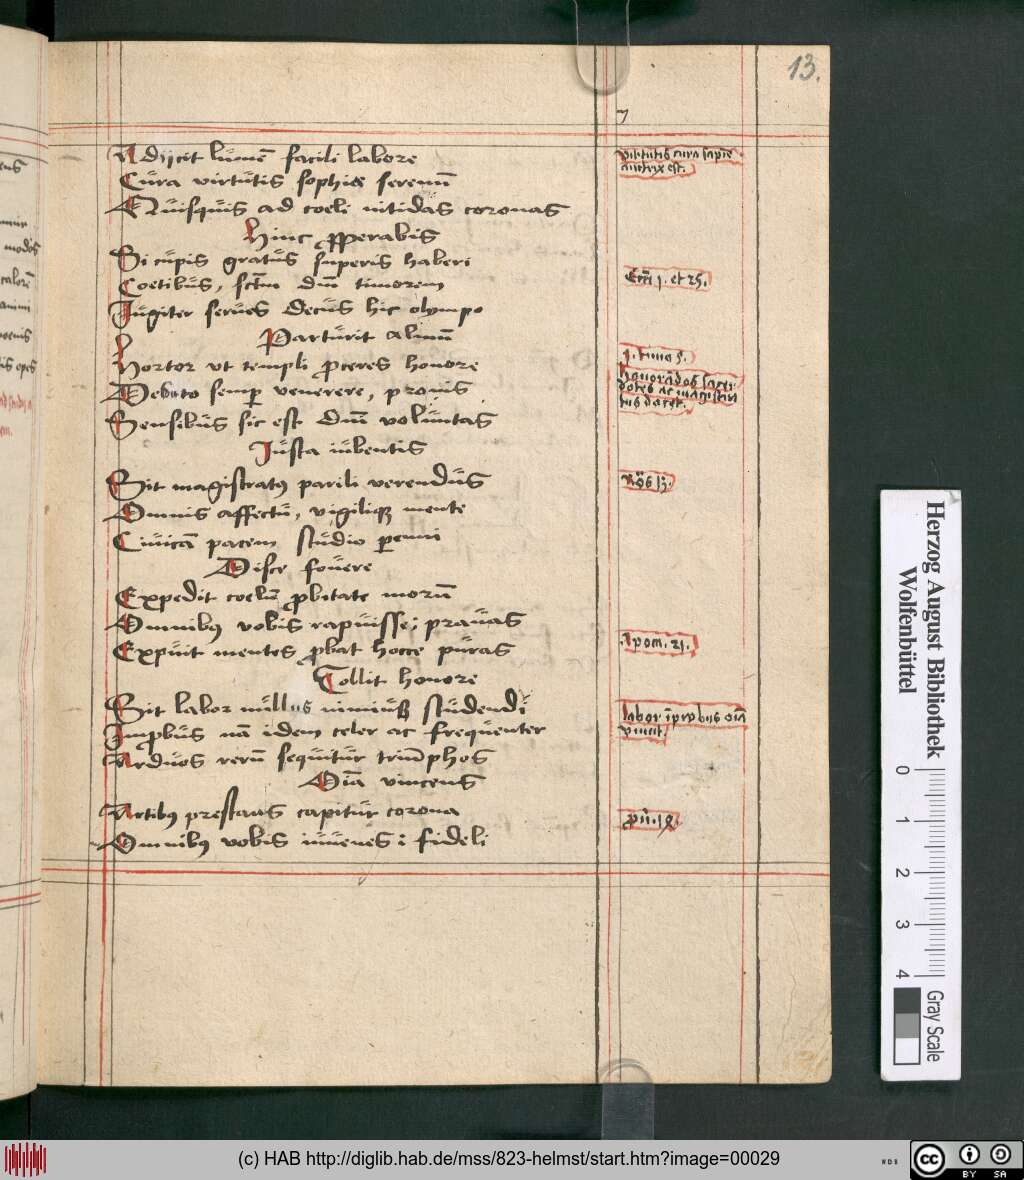 13.
7
Adijcit lumē facili labore
Cura virtutis sophie serenū
Quisquis ad coeli nitidas coronas
Hinc properabis
Si cupis gratus superis haberi
Coetibus, sctm̄ dnī timorem
Jugiter serues decus hic olympo
Parturit almū
Hortor vt templi proceres honore
Debito semper venerere, pronis
Sensibus sic est dnī voluntas
Iusta iubentis
Sit magistratus parili verendus
Omnis affectu, vigilique mente
Ciuicā pacem studio perenni
Disce fouere
Expedit coelū probitate morū
Omnibus vobis rapuisse: prauas
Expuit mentes probat hocce puras
Tollit honore
Sit labor nullus nimiusque studendi
Improbus nā idem celer ac frequenter
Arduos rerū sequitur triūphos
Oīa vincens
Artibus prestans capitur corona
Omnibus vobis iuuenes i fideli
virtutis cura sapiē
nutrix est.
Eccī 1. et 25.
1. timo 5.
honorādos sacer
dotes ac magistra
tus docet.
Rō 13.
Apoca. 21.
labor īprobus oīa
vincit.
Herzog August Bibliothek
Wolfenbüttel
0 1 2 3 4
Gray Scale
(c) HAB http://diglib.hab.de/mss/823-helmst/start.htm?image=00029
cc BY SA